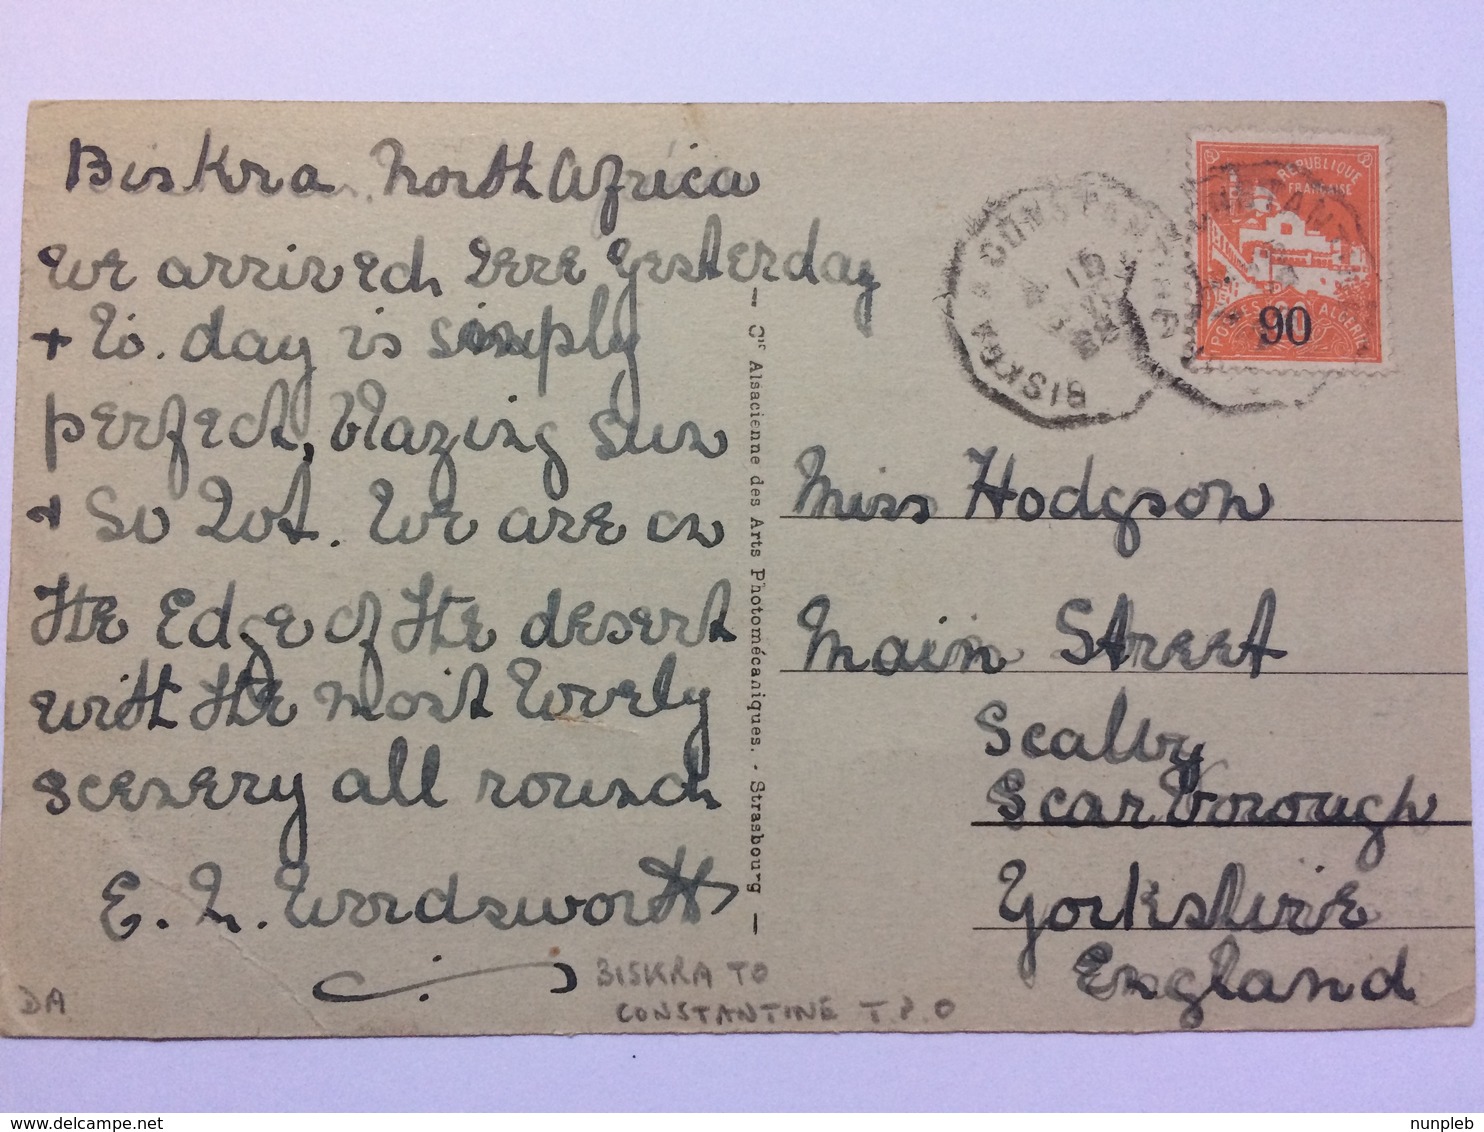 Biskra. North Africa
We arrived here yesterday
+ To. day is simply
perfect, blazing sun
+ so hot. We are on
the Edge of the desert
with the most lovely
scenery all round
E. N. Wordsworth
DA
BISKRA TO
CONSTANTINE T.P.O
Cie Alsacienne des Arts Photomécaniques. - Strasbourg
BISKRA A CONSTANTINE
REPUBLIQUE
FRANÇAISE
90
POSTES ALGERIE
Miss Hodgson
Main Street
Scalby
Scarborough
Yorkshire
England
delcampe.net
nunpleb